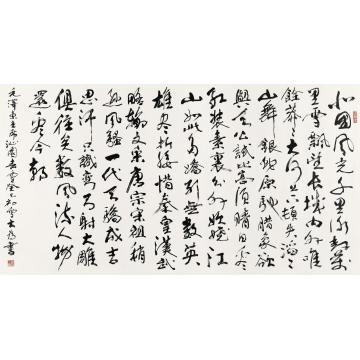 北國風光千里冰封萬
里雪飄望長城内外唯
餘莽莽大河上下頓失滔滔
山舞銀蛇原馳蠟象欲
與天公試比高須晴日看
紅裝素裹分外妖嬈江
山如此多嬌引無數英
雄盡折腰惜秦皇漢武
略輸文采唐宗宋祖稍
遜風騷一代天驕成吉
思汗只識彎弓射大雕
俱往矣數風流人物
還看今朝
毛澤東主席沁園春雪癸巳初雪書